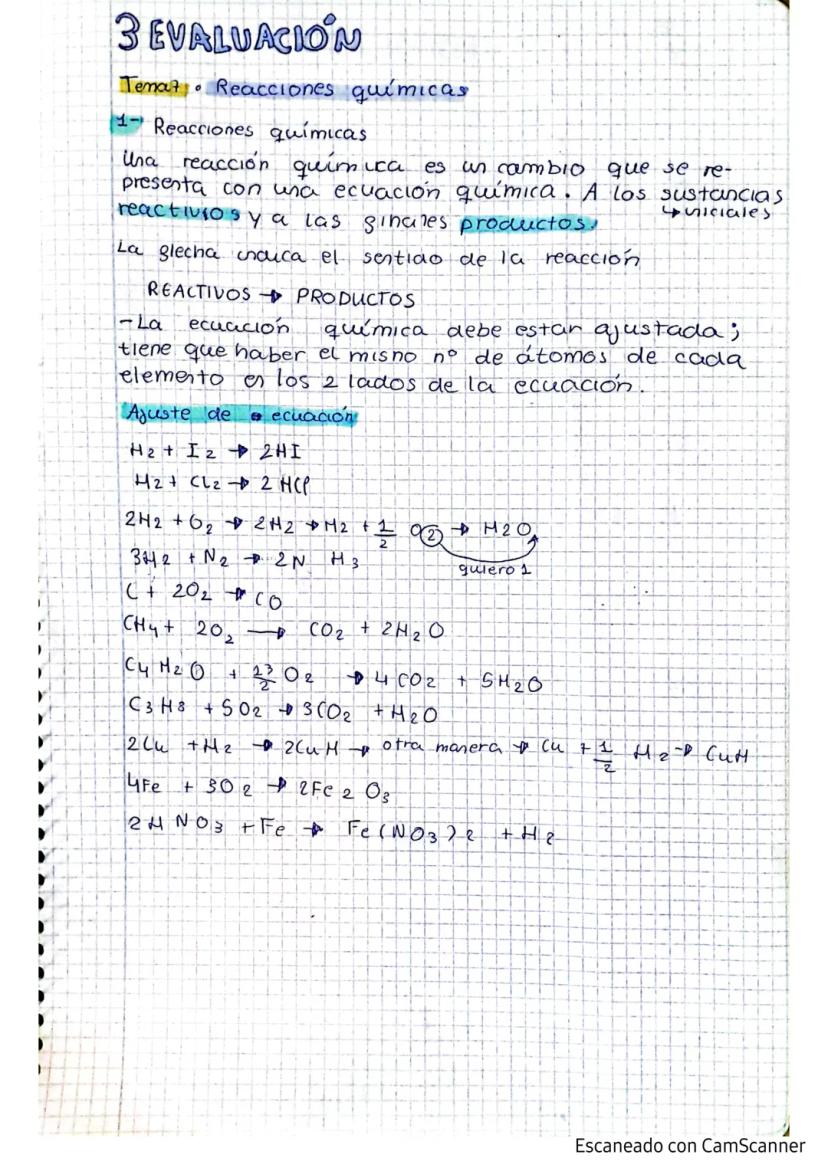 3 EVALUACIÓN
Tema 7. Reacciones químicas
1- Reacciones químicas
Una reacción química es un cambio que se re-
presenta con una ecuación química. A los sustancias
↳ iniciales
reactivos y a las finales productos.
La flecha indica el sentido de la reacción
REACTIVOS → PRODUCTOS
-La ecuación química debe estar ajustada;
tiene que haber el mismo nº de átomos de cada
elemento en los 2 lados de la ecuación.
Ajuste de ecuación
H2 + I2 → 2HI
H2 + Cl2 → 2 HCl
2H2 + O2 → 2H2 → H2 + 1/2 O2 → H2O
quiero 1
3H2 + N2 → 2N H3
C + 2O2 → CO
CH4 + 2O2 → CO2 + 2H2O
C4 H2O + 13/2 O2 → 4 CO2 + 5H2O
C3 H8 + 5O2 → 3CO2 + H2O
2Cu + H2 → 2CuH → otra manera → Cu + 1/2 H2 → CuH
4Fe + 3O2 → 2Fe2 O3
2H NO3 + Fe → Fe(NO3)2 + H2
Escaneado con CamScanner